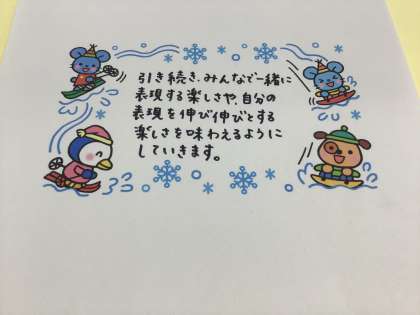 引き続き、みんなで一緒に
表現する楽しさや、自分の
表現を伸び伸びとする
楽しさを味わえるように
していきます。